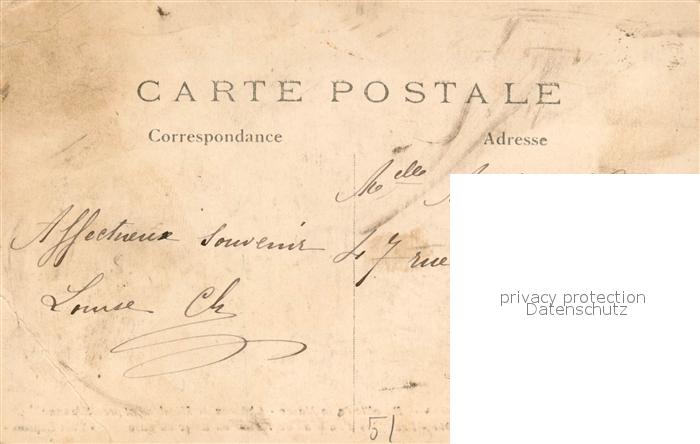 CARTE POSTALE
Correspondance
Adresse
Affectueux souvenir
Louise Ch
Melle
47 rue
privacy protection
Datenschutz
51